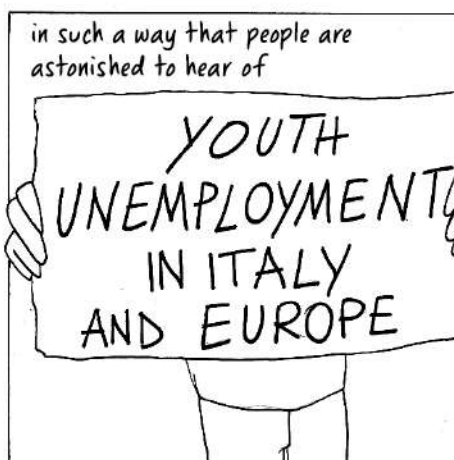 in such a way that people are
astonished to hear of
YOUTH
UNEMPLOYMENT
IN ITALY
AND EUROPE